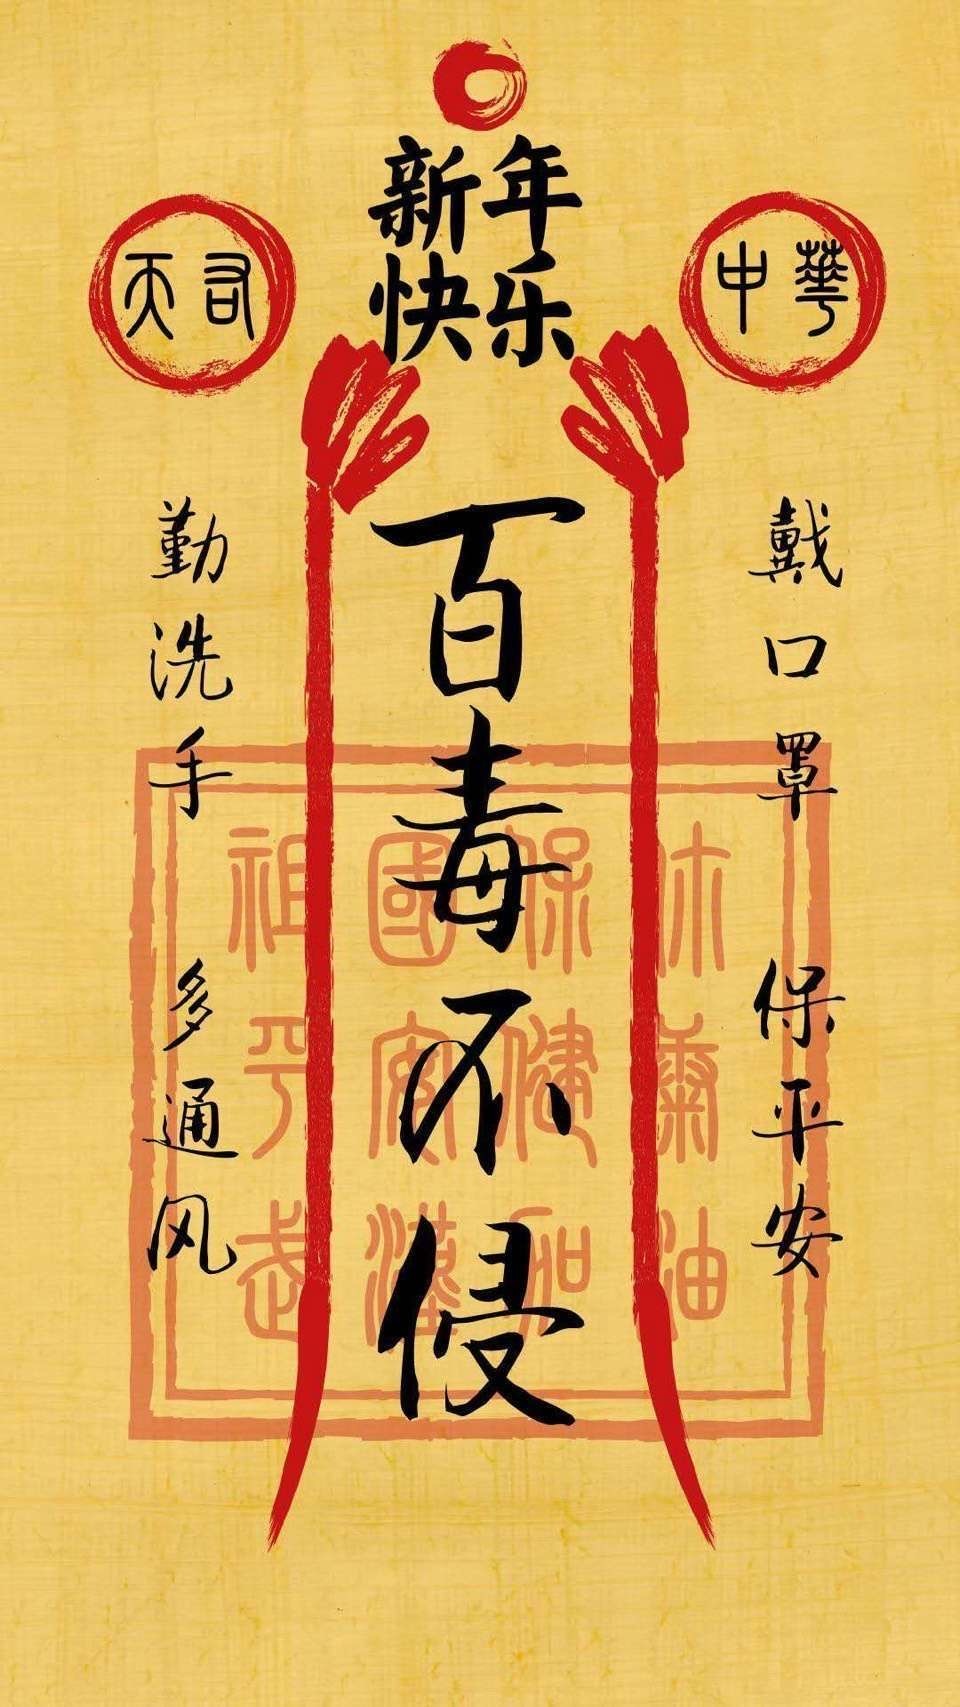 新年
快乐
天佑
中華
百毒不侵
戴口罩 保平安
勤洗手 多通风
祖國保
平安健康
武漢加油